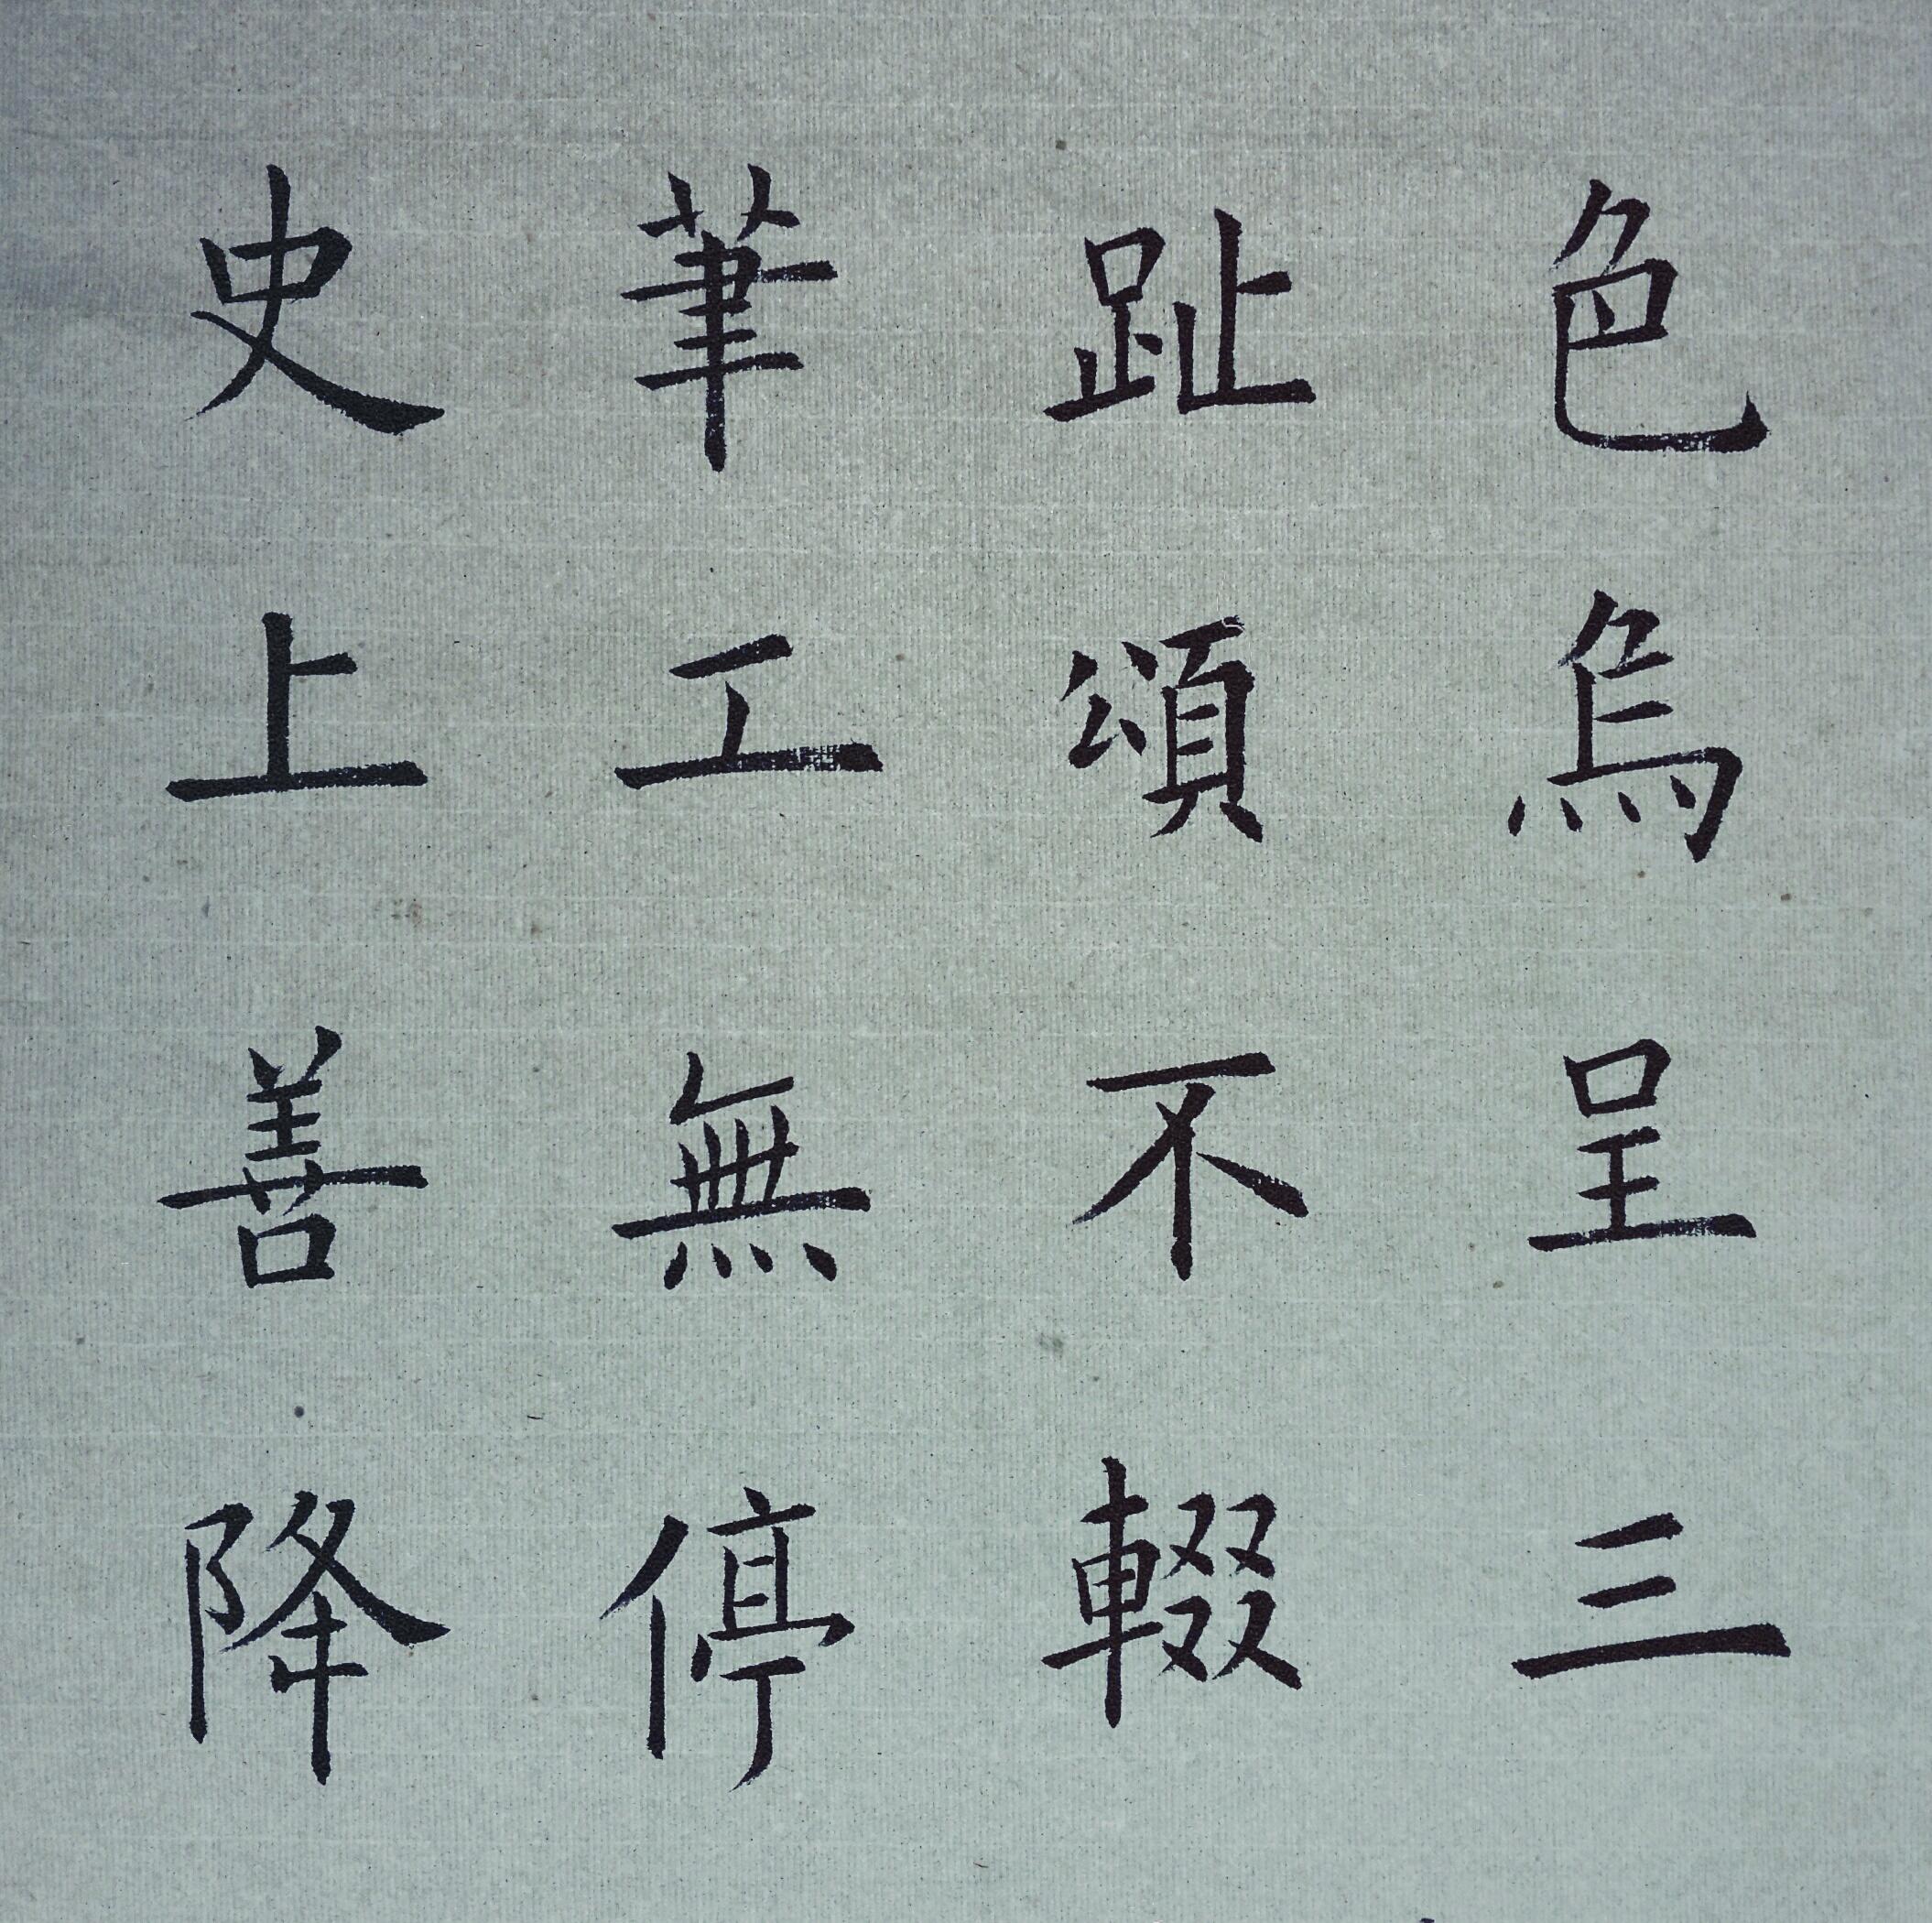 色烏呈三
趾頌不輟
筆工無停
史上善降